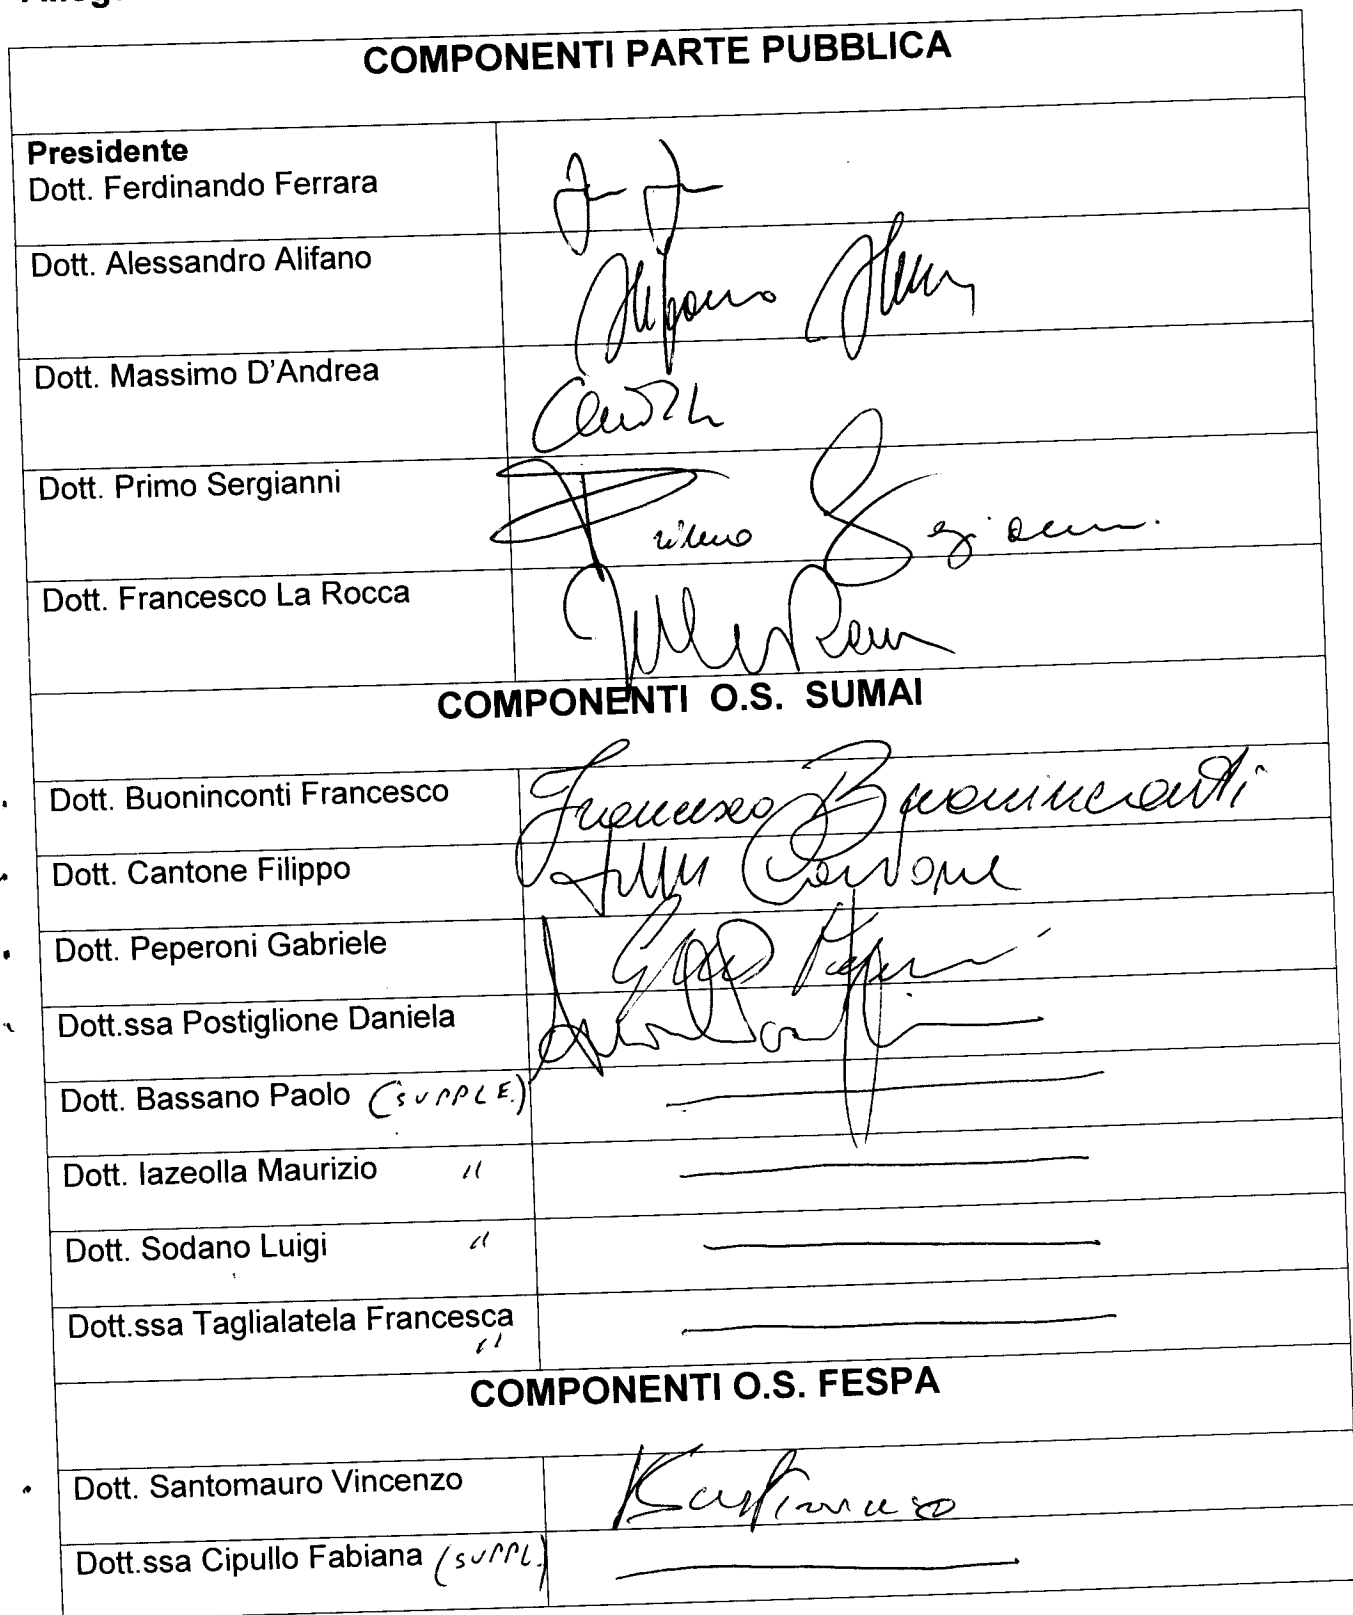 COMPONENTI PARTE PUBBLICA
Presidente
Dott. Ferdinando Ferrara
Dott. Alessandro Alifano
Dott. Massimo D'Andrea
Dott. Primo Sergianni
Primo Sergianni
Dott. Francesco La Rocca
COMPONENTI O.S. SUMAI
Dott. Buoninconti Francesco
Francesco Buoninconti
Dott. Cantone Filippo
Cantone
Dott. Peperoni Gabriele
Dott.ssa Postiglione Daniela
Dott. Bassano Paolo (SUPPLE.)
Dott. Iazeolla Maurizio "
Dott. Sodano Luigi "
Dott.ssa Taglialatela Francesca
"
COMPONENTI O.S. FESPA
Dott. Santomauro Vincenzo
Dott.ssa Cipullo Fabiana (SUPPL.)